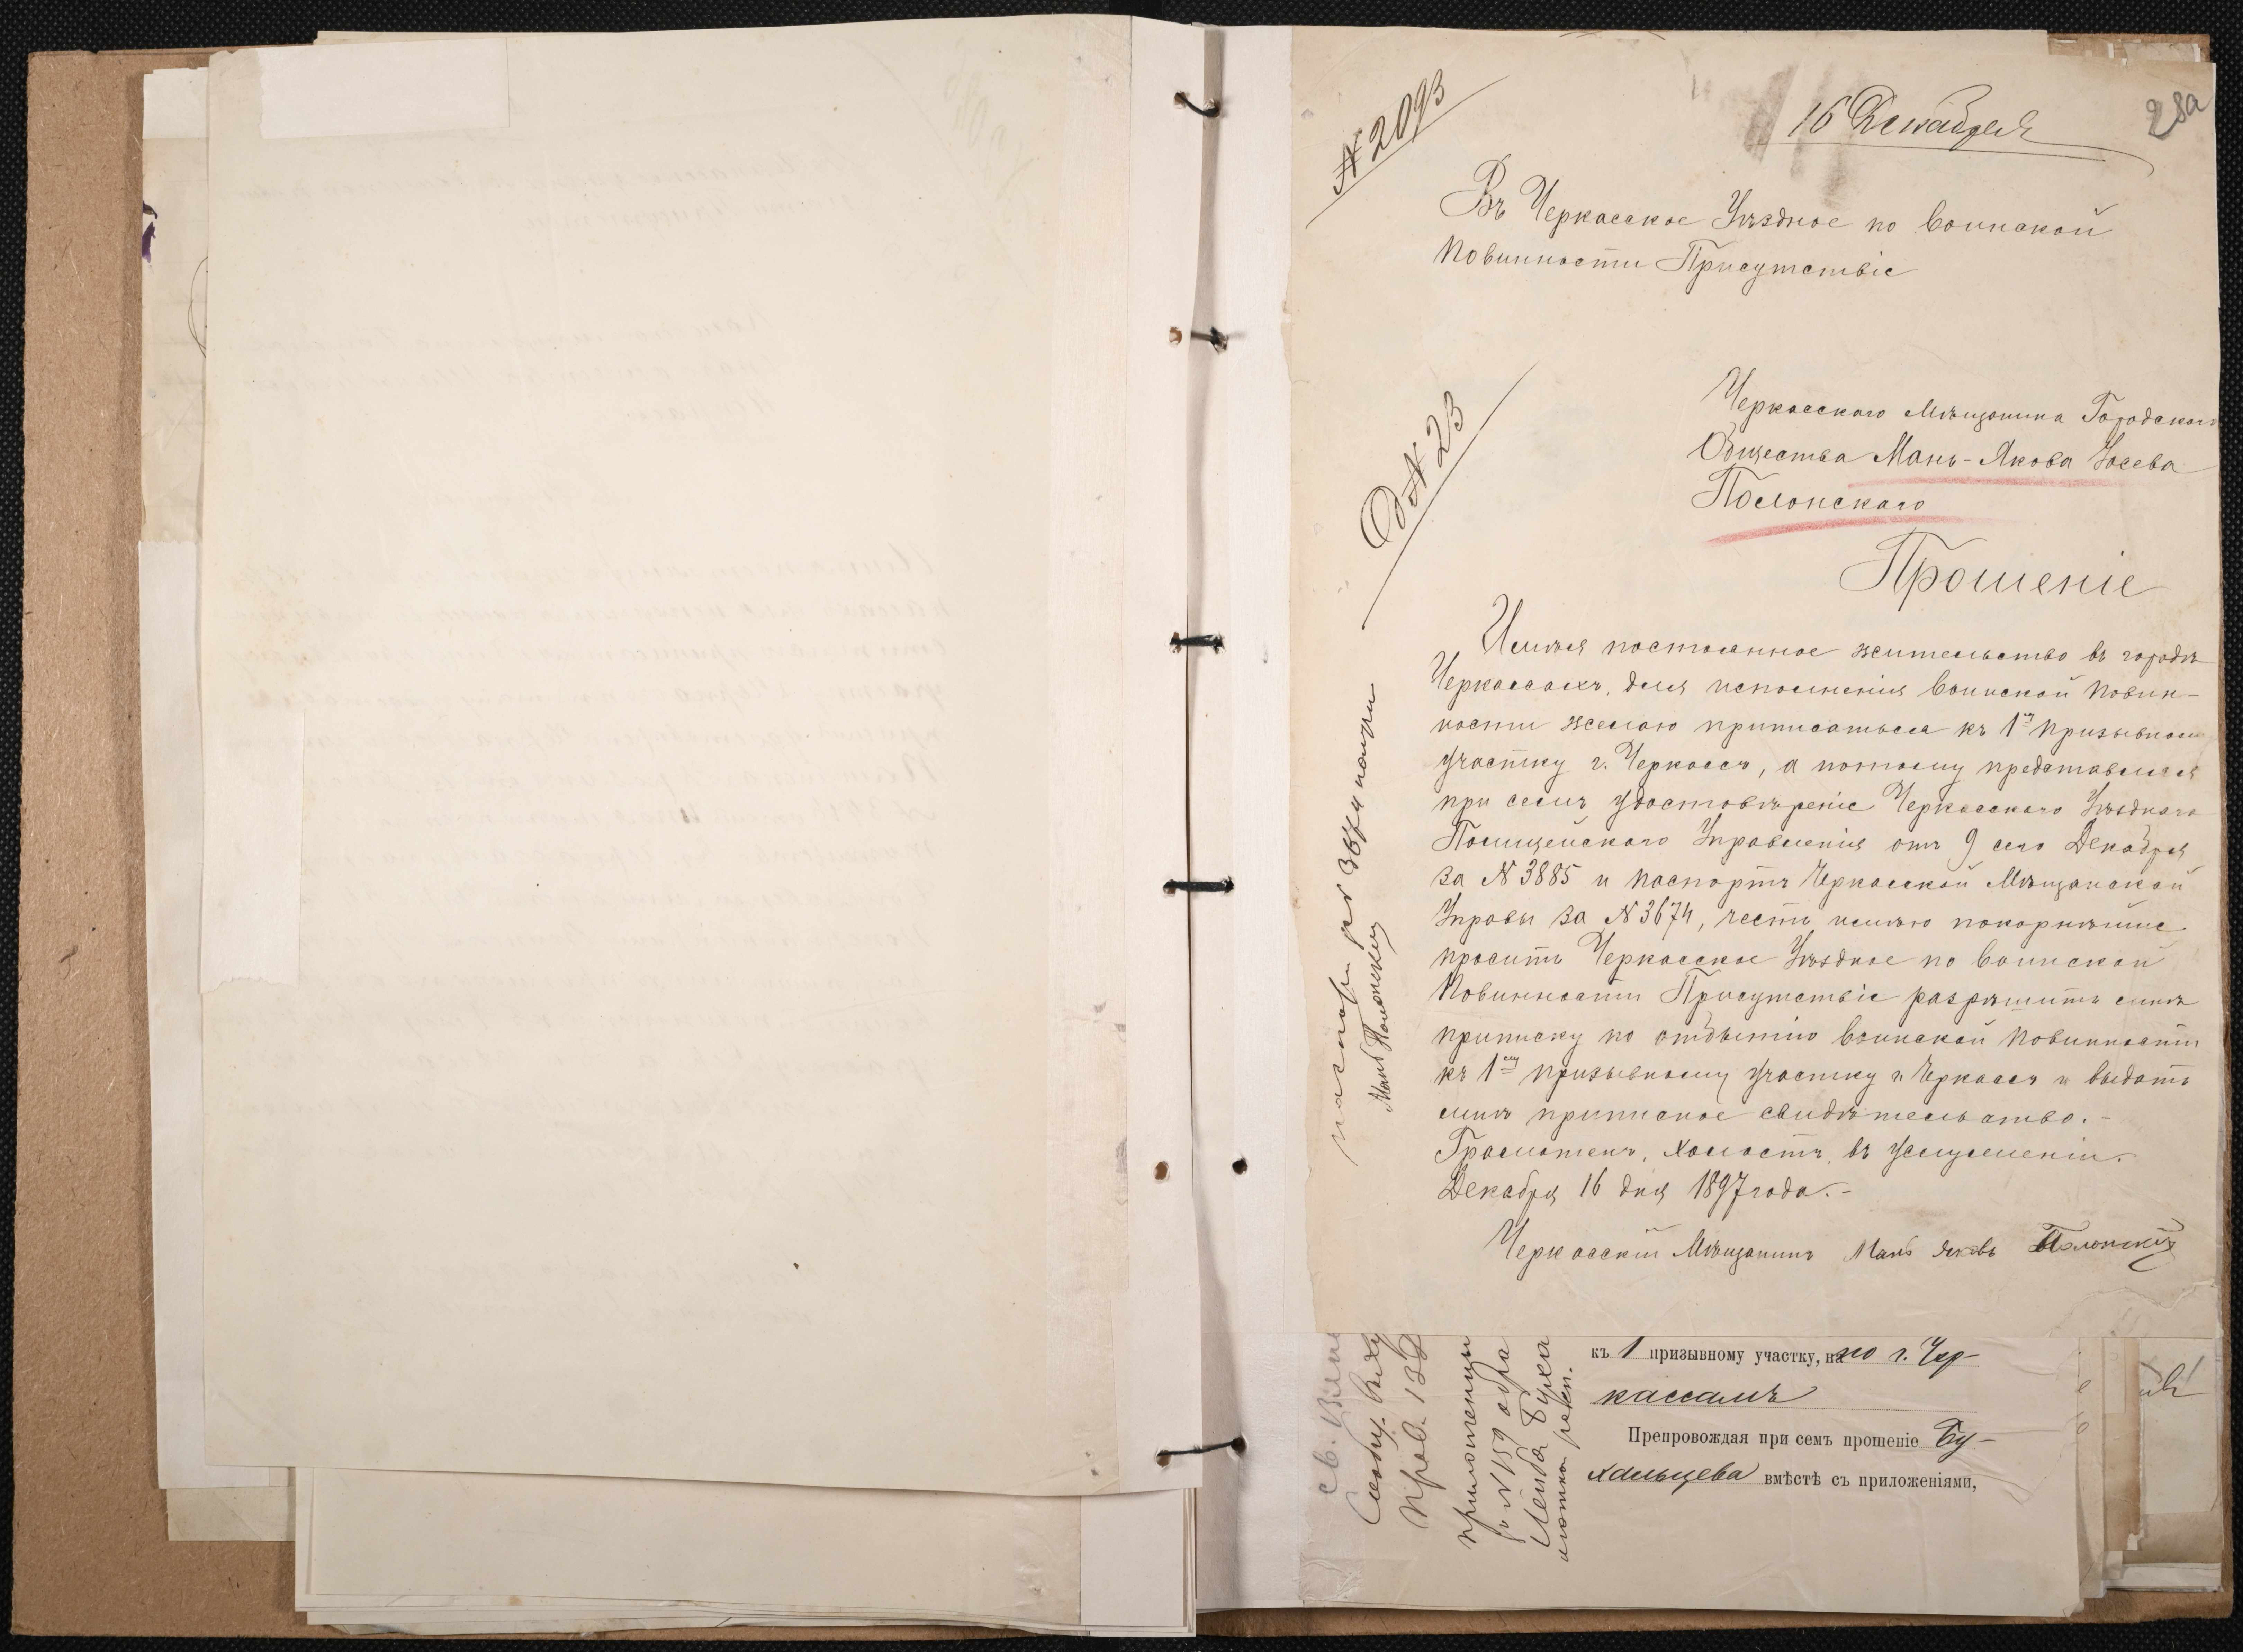 № 2093
16 Декабря
28а
Въ Черкасское Уѣздное по Воинской
Повинности Присутствіе
Черкасскаго Мѣщанина Городскаго
Общества Мань-Якова Іосева
Полонскаго
Прошеніе
Имѣя постоянное жительство въ городѣ
Черкассахъ, для исполненія Воинской Повин-
ности желаю приписаться къ 1му Призывному
участку г. Черкассъ, а потому представляя
при семъ удостовѣреніе Черкасскаго Уѣзднаго
Полицейскаго Управленія отъ 9 сего Декабря
за № 3885 и паспортъ Черкасской Мѣщанской
Управы за № 3674, честь имѣю покорнѣйше
просить Черкасское Уѣздное по Воинской
Повинности Присутствіе разрѣшить мнѣ
приписку по отбытію Воинской Повинности
къ 1му Призывному участку г. Черкассъ и выдать
мнѣ приписное свидѣтельство.-
Грамотенъ, холостъ, въ услуженіи.
Декабря 16 дня 1897 года.-
Черкасскій Мѣщанинъ Мань Яковъ Полонскій
Од № 23
паспортъ за № 3674 получи
Мань Полонскій
къ 1 призывному участку, на по г. Чер-
кассамъ
Препровождая при семъ прошеніе Бу-
хальцева вмѣстѣ съ приложеніями,
св.
прав. 132
приложенцы
и № 159 обра
Лейба Буха